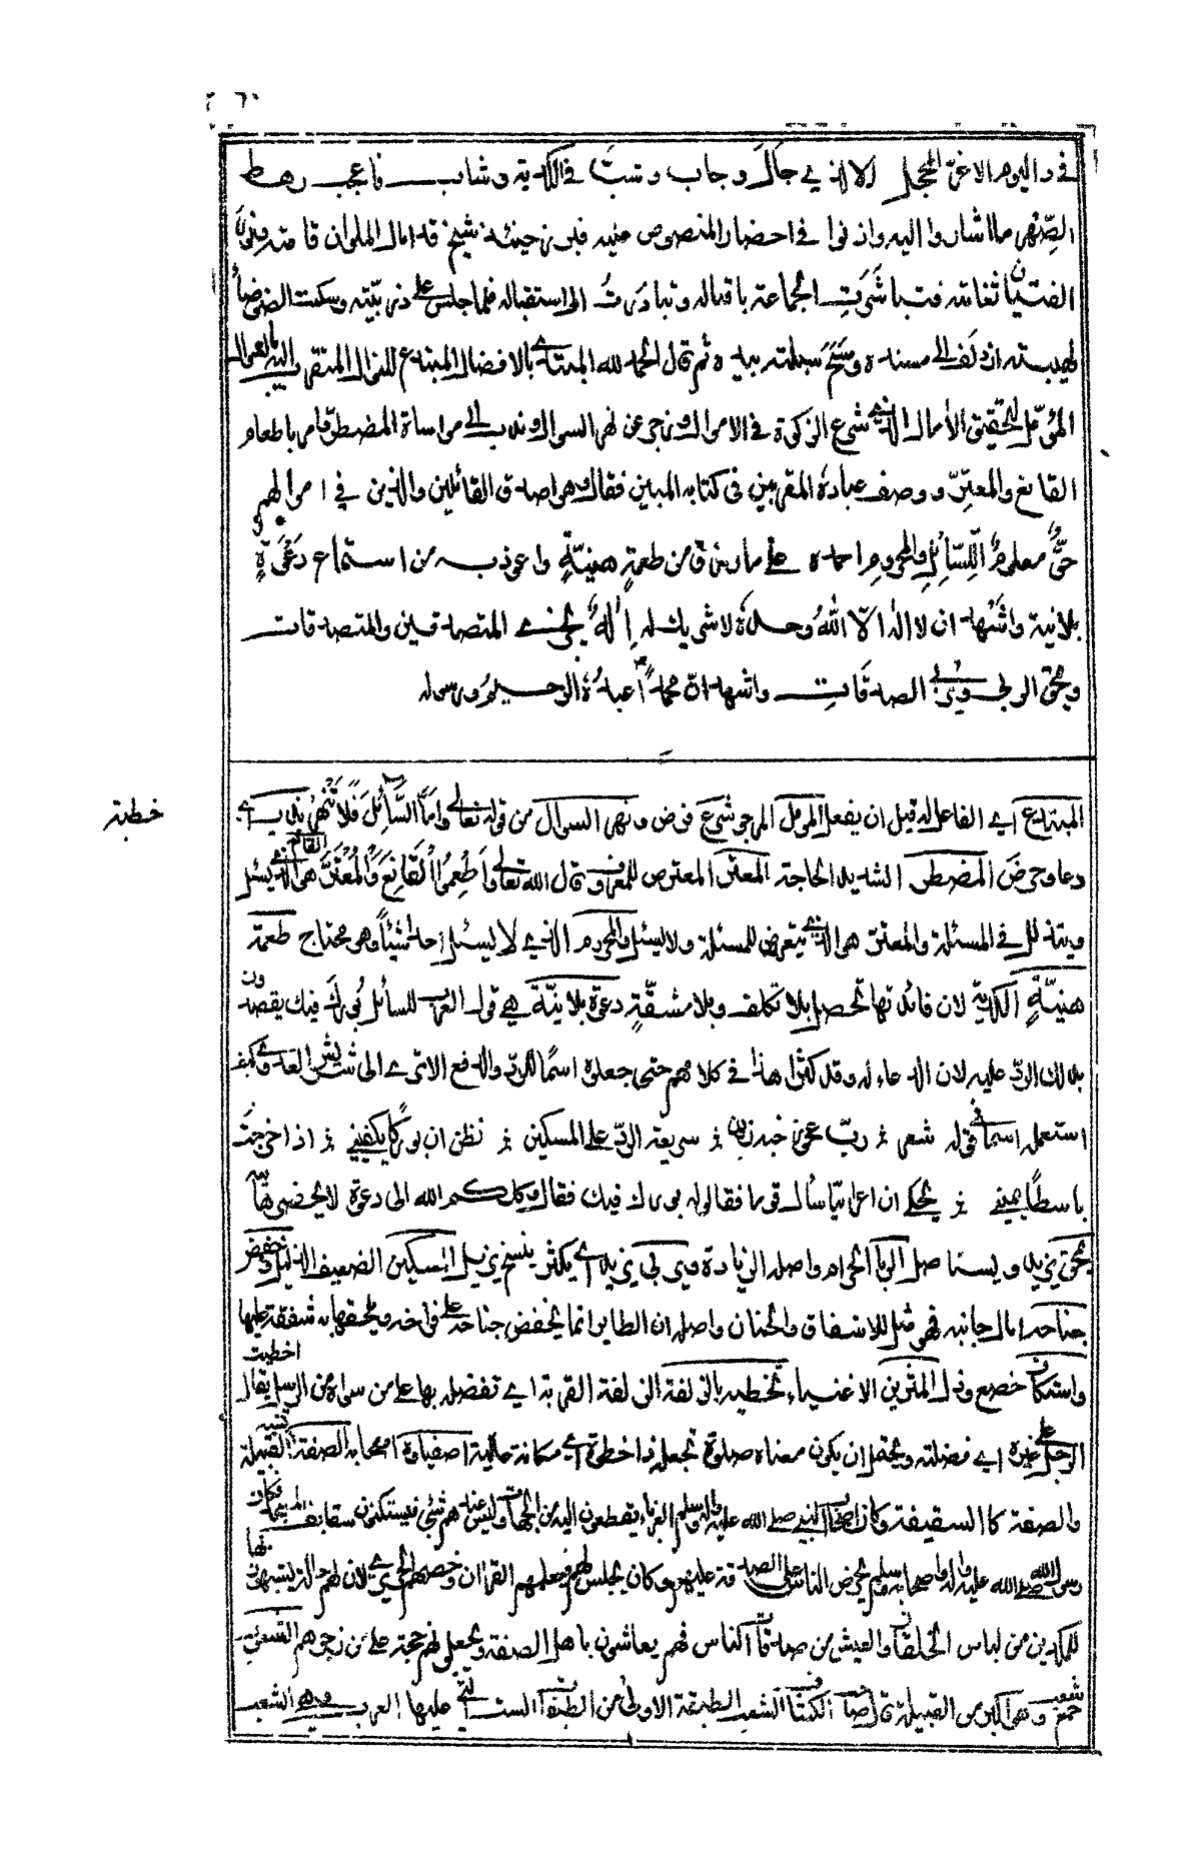 في ذا اليوم الاغرّ المحجل الا الذي جال وجاب وشبّ في الكدية وشاب فاعجب رهط
الصِّهْر ما اشاروا اليه واذنوا في احضار المنصوص عليه فبرز حينئذ شيخ قد امال الملوان قامته ونوّر
الفتيان ثغامته فتباشَرَتِ الجماعة باقباله وتبادرتْ الى استقباله فلما جلس على زربيّته وسكنت الضوضاءُ
لهيبته ازدلف الى مسنده ومسَحَ سبلته بيده ثم قال الحمد لله المبتدئ بالافضال المبتدع للنوال المتقرب اليه بالسوال
المؤمّل لتحقيق الأمال الذي شرع الزكوة في الاموال وزجر عن نهر السوال وندب الى مواساة المضطر وامر باطعام
القانع والمعترّ ووصف عباده المقربين في كتابه المبين فقال وهو اصدق القائلين والذين في اموالهم
حقٌّ معلومٌ لِّلسّائلِ والمحرومِ احمده على ما رزق من طعمةٍ هنيئةٍ واعوذ به من استماع دعوةٍ
بلا نية واشهد ان لا اله الا اللهُ وحدهُ لا شريك له إلٰهٌ يجزي المتصدقين والمتصدقات
ويمحق الربى ويُربي الصدقاتِ واشهد انّ محمداً عبدُهُ الرحيمُ ورسوله
خطبة
المبتدع اي الفاعل له قبل ان يفعل المومل المرجو شرع فرض ونهر السوال من قوله تعالى وامّا السّائِلَ فَلَا تَنْهَرْ ندب اي
دعا وحرضَ المضطر الشديد الحاجة المعترّ المعترض للمعروف قال الله تعالى واَطْعِمُوا القَانِعَ وَالمُعْتَرَّ القانع هو الذي يسئل
ويتذلل في المسئلة والمعترّ هو الذي يتعرض للمسئلة ولا يسئل والمحروم الذي لا يسئل احدا شيئاً وهو محتاج طعمة
هنيئةٍ الكدية لان فائدتها تحصل بلا تكلف وبلا مشقّةٍ دعوة بلا نيّة هي قول العرب للسائل بُورِكَ فيك يقصدون
بذلك الردّ عليه لان الدعاء له وقد كثر هذا في كلامهم حتى جعلوه اسمًا للردّ والدفع الا ترى الى
استعمله اسما في قوله شعر ؛ ربّ عجوز ؛ سريعة الردّ على المسكين ؛ تظن ان بوركا يكفيني ؛ اذا خرجتُ
باسطًا يميني ؛ يحكى ان اعرابيّا سأل قوما فقالوا له بورك فيك فقال وكلكم الله الى دعوة لا يحضرها
يمحق يزيل ويستاصل الربا الحرام واصله الزيادة ويربي يزيد اي يكثر ينسخ يزيل المسكين الضعيف الذليل وخفض
جناحه امال جانبه فهو مثل للاشفاق والحنان واصله ان الطاير انما يخفض جناحه على فراخه شفقة عليها
واستكان خضع وذل المثرين الاغنياء تخطيه بالزلفة الزلفة القربة اي تفضله بها على من سواه من الرسل يقال اخطيت
الرجل على غيره اي فضلته ويحتمل ان يكون معناه صلوة تجعله ذا حظوة اي مكانة عالية اصفياؤه اصحابه الصفة
والصفة كالسقيفة وكان اصحاب النبي صلى الله عليه واله وسلم الغرباء يقطعون اليه من الجهات وليس عندهم شئ فيسكنون سقائف المسجد فكان
رسول الله صلى الله عليه واله واصحابه وسلم يحرض الناس على الصدقة عليهم وكان يجلس لهم ويعلمهم القران وخصهم الحريري لان لهم حالة يشبهونها
للمكدين من لباس الخلقان والعيش من صدقات الناس فهم يعاشون باهل الصفة ويجعلونهم حجة على من زجرهم الشعوب
جمع شعب وهو اكبر من القبيلة قال صاحب الكشاف الشعب الطبقة الاولى من الطبقات الست التي عليها العرب وهي الشعب